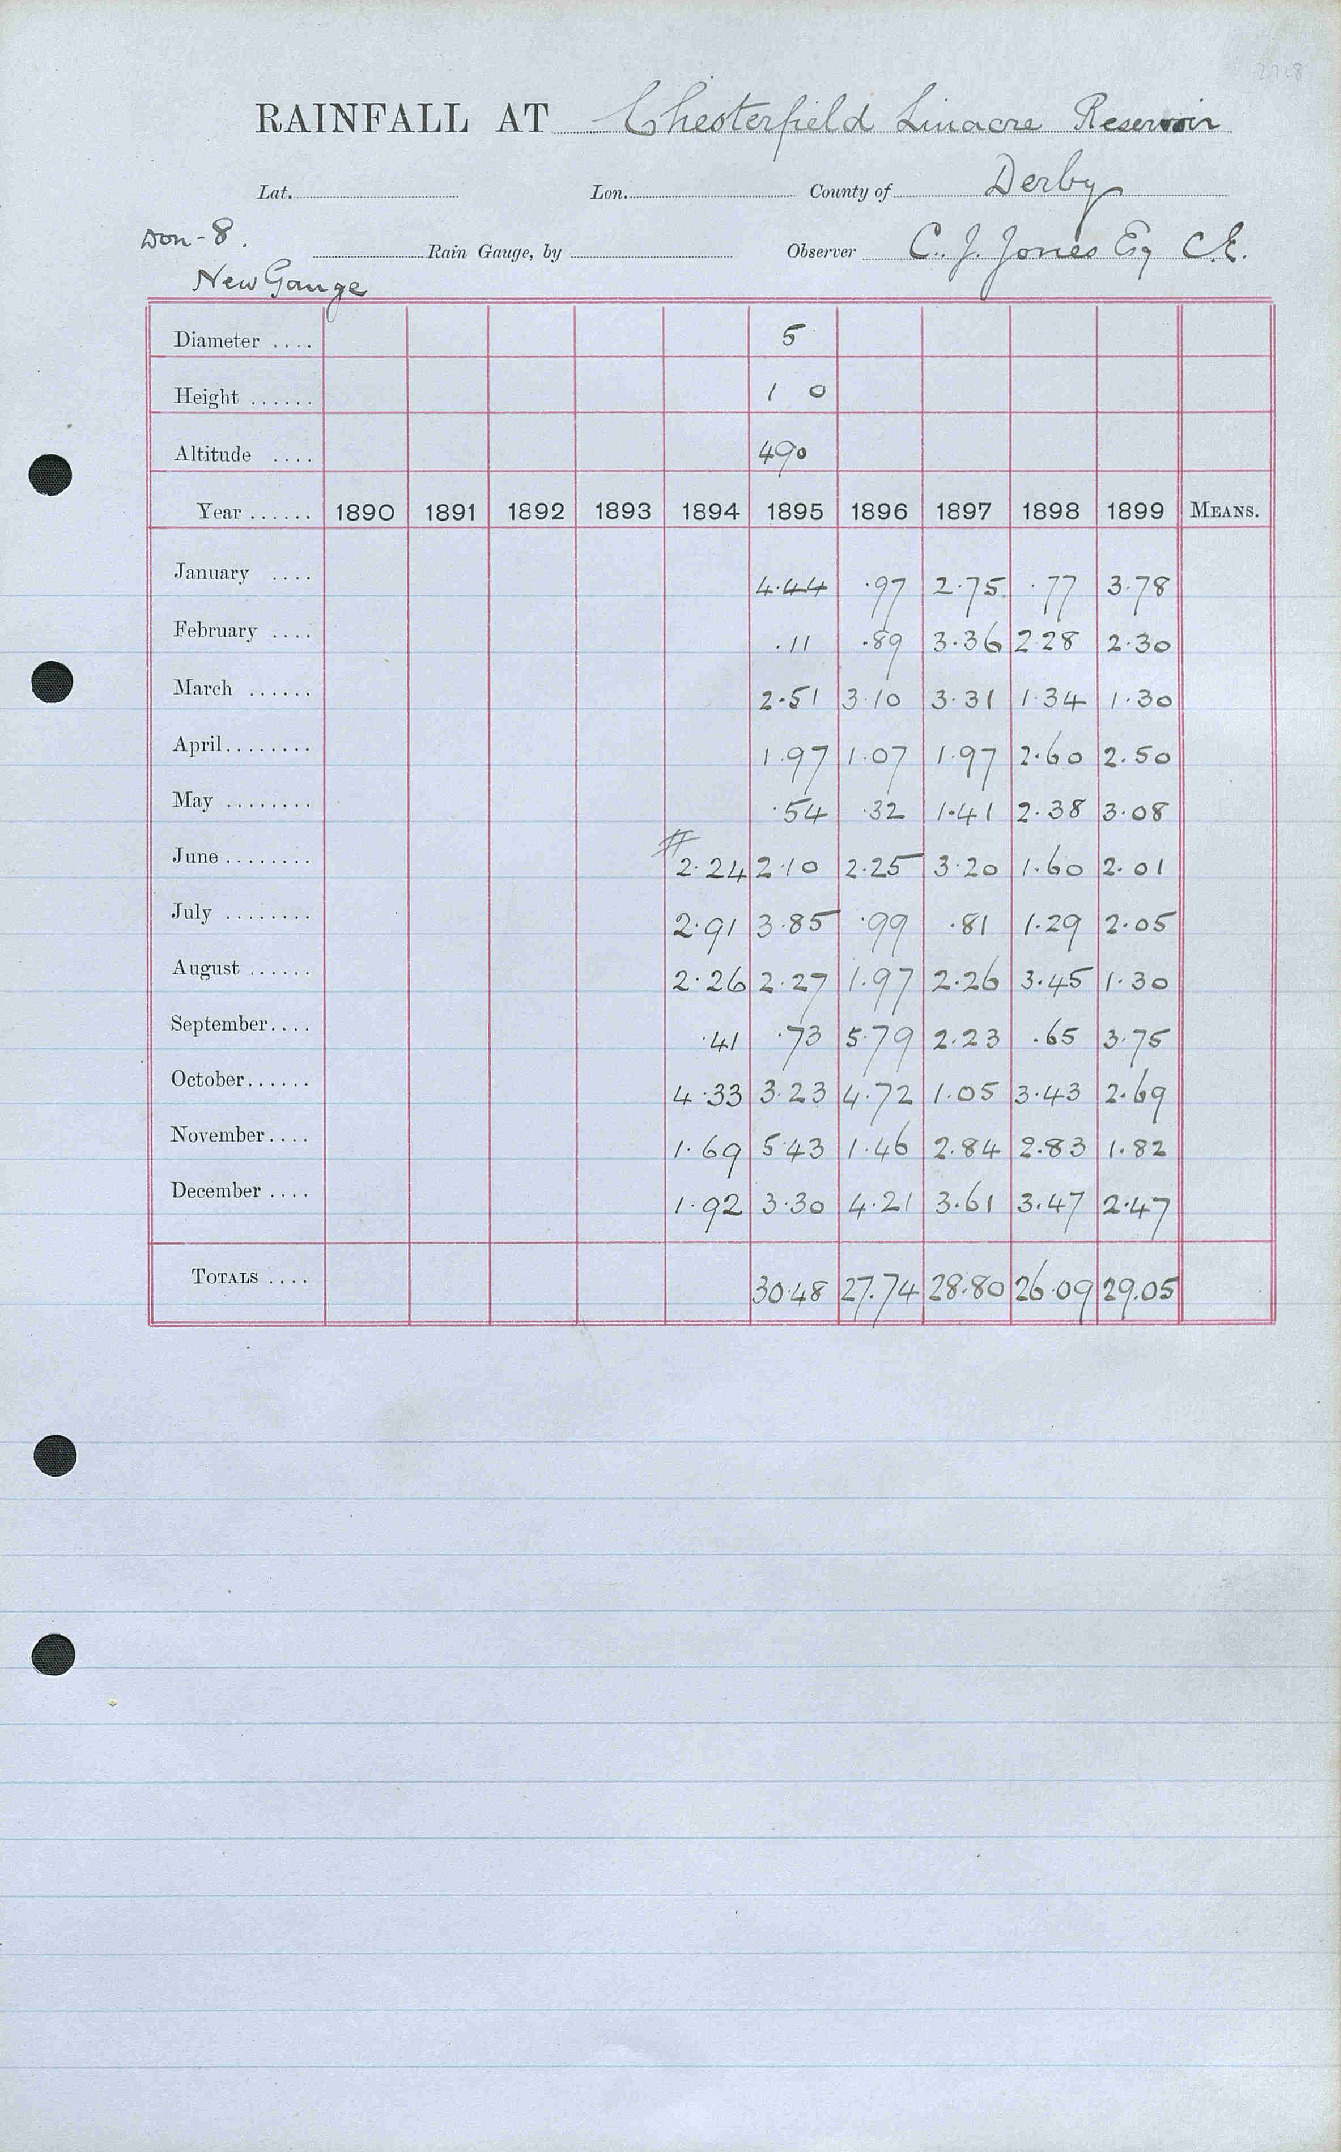 RAINFALL AT Chesterfield Linacre Reservoir
Lat. Lon. County of Derby
Don - 8. Rain Gauge, by Observer C. J. Jones Esq C.E.
New Gauge
Diameter .... 5
Height ...... 1 0
Altitude .... 490
Year ...... 1890 1891 1892 1893 1894 1895 1896 1897 1898 1899 MEANS.
January .... 4.44 .97 2.75 .77 3.78
February .... .11 .89 3.36 2.28 2.30
March ...... 2.51 3.10 3.31 1.34 1.30
April........ 1.97 1.07 1.97 2.60 2.50
May ........ .54 .32 1.41 2.38 3.08
June ........ # 2.24 2.10 2.25 3.20 1.60 2.01
July ........ 2.91 3.85 .99 .81 1.29 2.05
August ...... 2.26 2.27 1.97 2.26 3.45 1.30
September.... .41 .73 5.79 2.23 .65 3.75
October...... 4.33 3.23 4.72 1.05 3.43 2.69
November.... 1.69 5.43 1.46 2.84 2.83 1.82
December .... 1.92 3.30 4.21 3.61 3.47 2.47
TOTALS .... 30.48 27.74 28.80 26.09 29.05